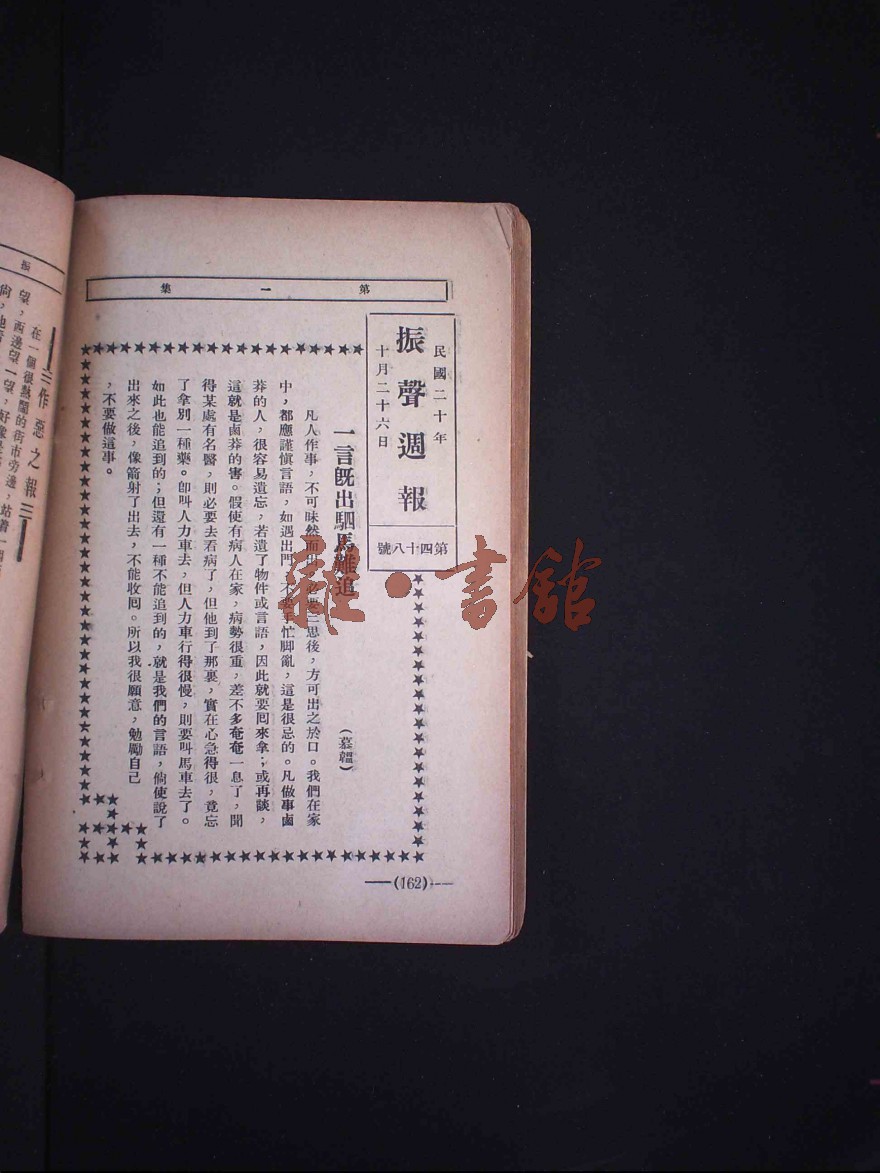 第一集
民國二十年
十月二十六日
振聲週報
第四十八號
一言旣出駟馬難追
(慕韞)
凡人作事，不可昧然而出，必要三思後，方可出之於口。我們在家
中，都應謹愼言語，如遇出門，不要手忙脚亂，這是很忌的。凡做事鹵
莽的人，很容易遺忘，若遺了物件或言語，因此就要囘來拿；或再談，
這就是鹵莽的害。假使有病人在家，病勢很重，差不多奄奄一息了，聞
得某處有名醫，則必要去看病了，但他到了那裏，實在心急得很，竟忘
了拿別一種藥。卽叫人力車去，但人力車行得很慢，則要叫馬車去了。
如此也能追到的；但還有一種不能追到的，就是我們的言語，倘使說了
出來之後，像箭射了出去，不能收囘。所以我很願意，勉勵自己
，不要做這事。
(162)
振
作惡之報
在一個很熱鬧的街市旁邊，站着一個
望，西邊望一望，好像是
龍·書館